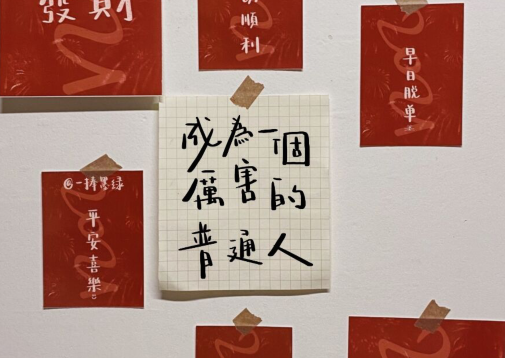 發財
順利
早日脫單
成為一個
厲害的
普通人
@一捧墨緑
平安喜樂:)